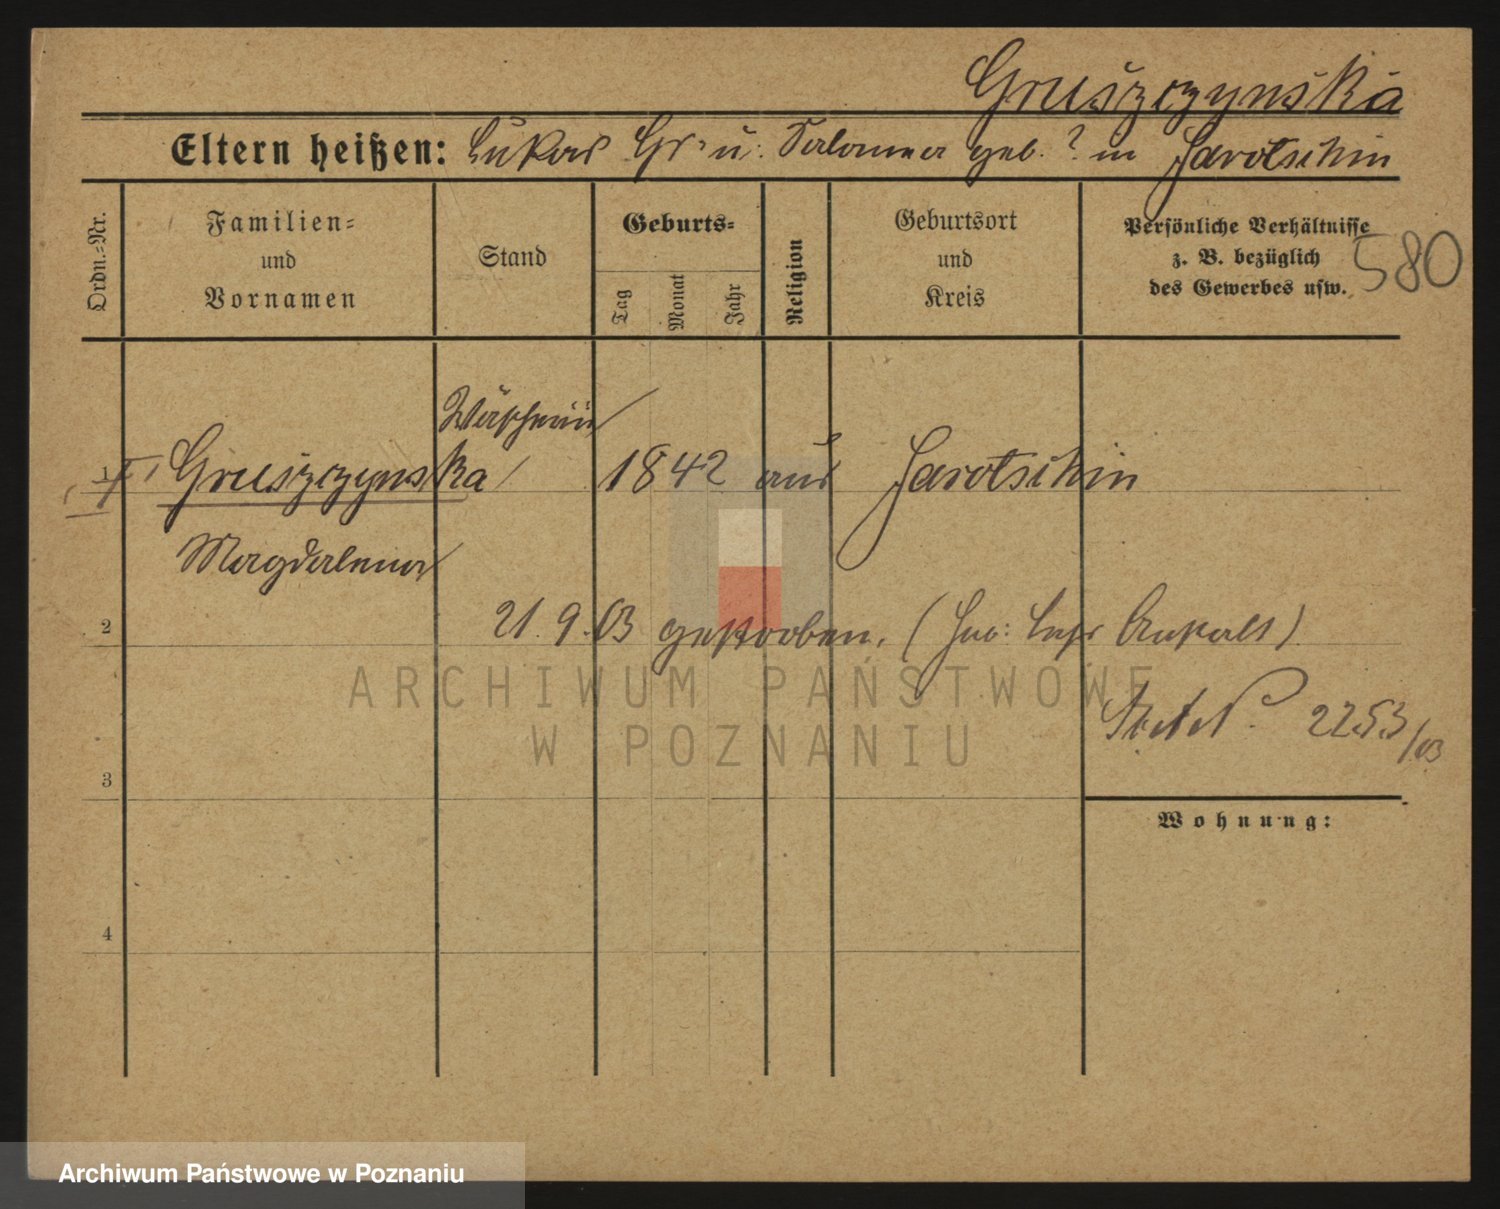 Gruszczynska
Eltern heißen: Lukas Gr. u. Salomea geb. ? in Jarotschin
Ordn.-Nr.
Familien-
und
Vornamen
Stand
Geburts-
Tag
Monat
Jahr
Religion
Geburtsort
und
Kreis
Persönliche Verhältnisse
z. B. bezüglich
des Gewerbes usw.
580
Wäscherin
1 Gruszczynska 1842 aus Jarotschin
Magdalena
2 21.9.03 gestorben. (
ARCHIWUM PAŃSTWOWE
W POZNANIU
2253/03
3
Wohnung:
4
Archiwum Państwowe w Poznaniu